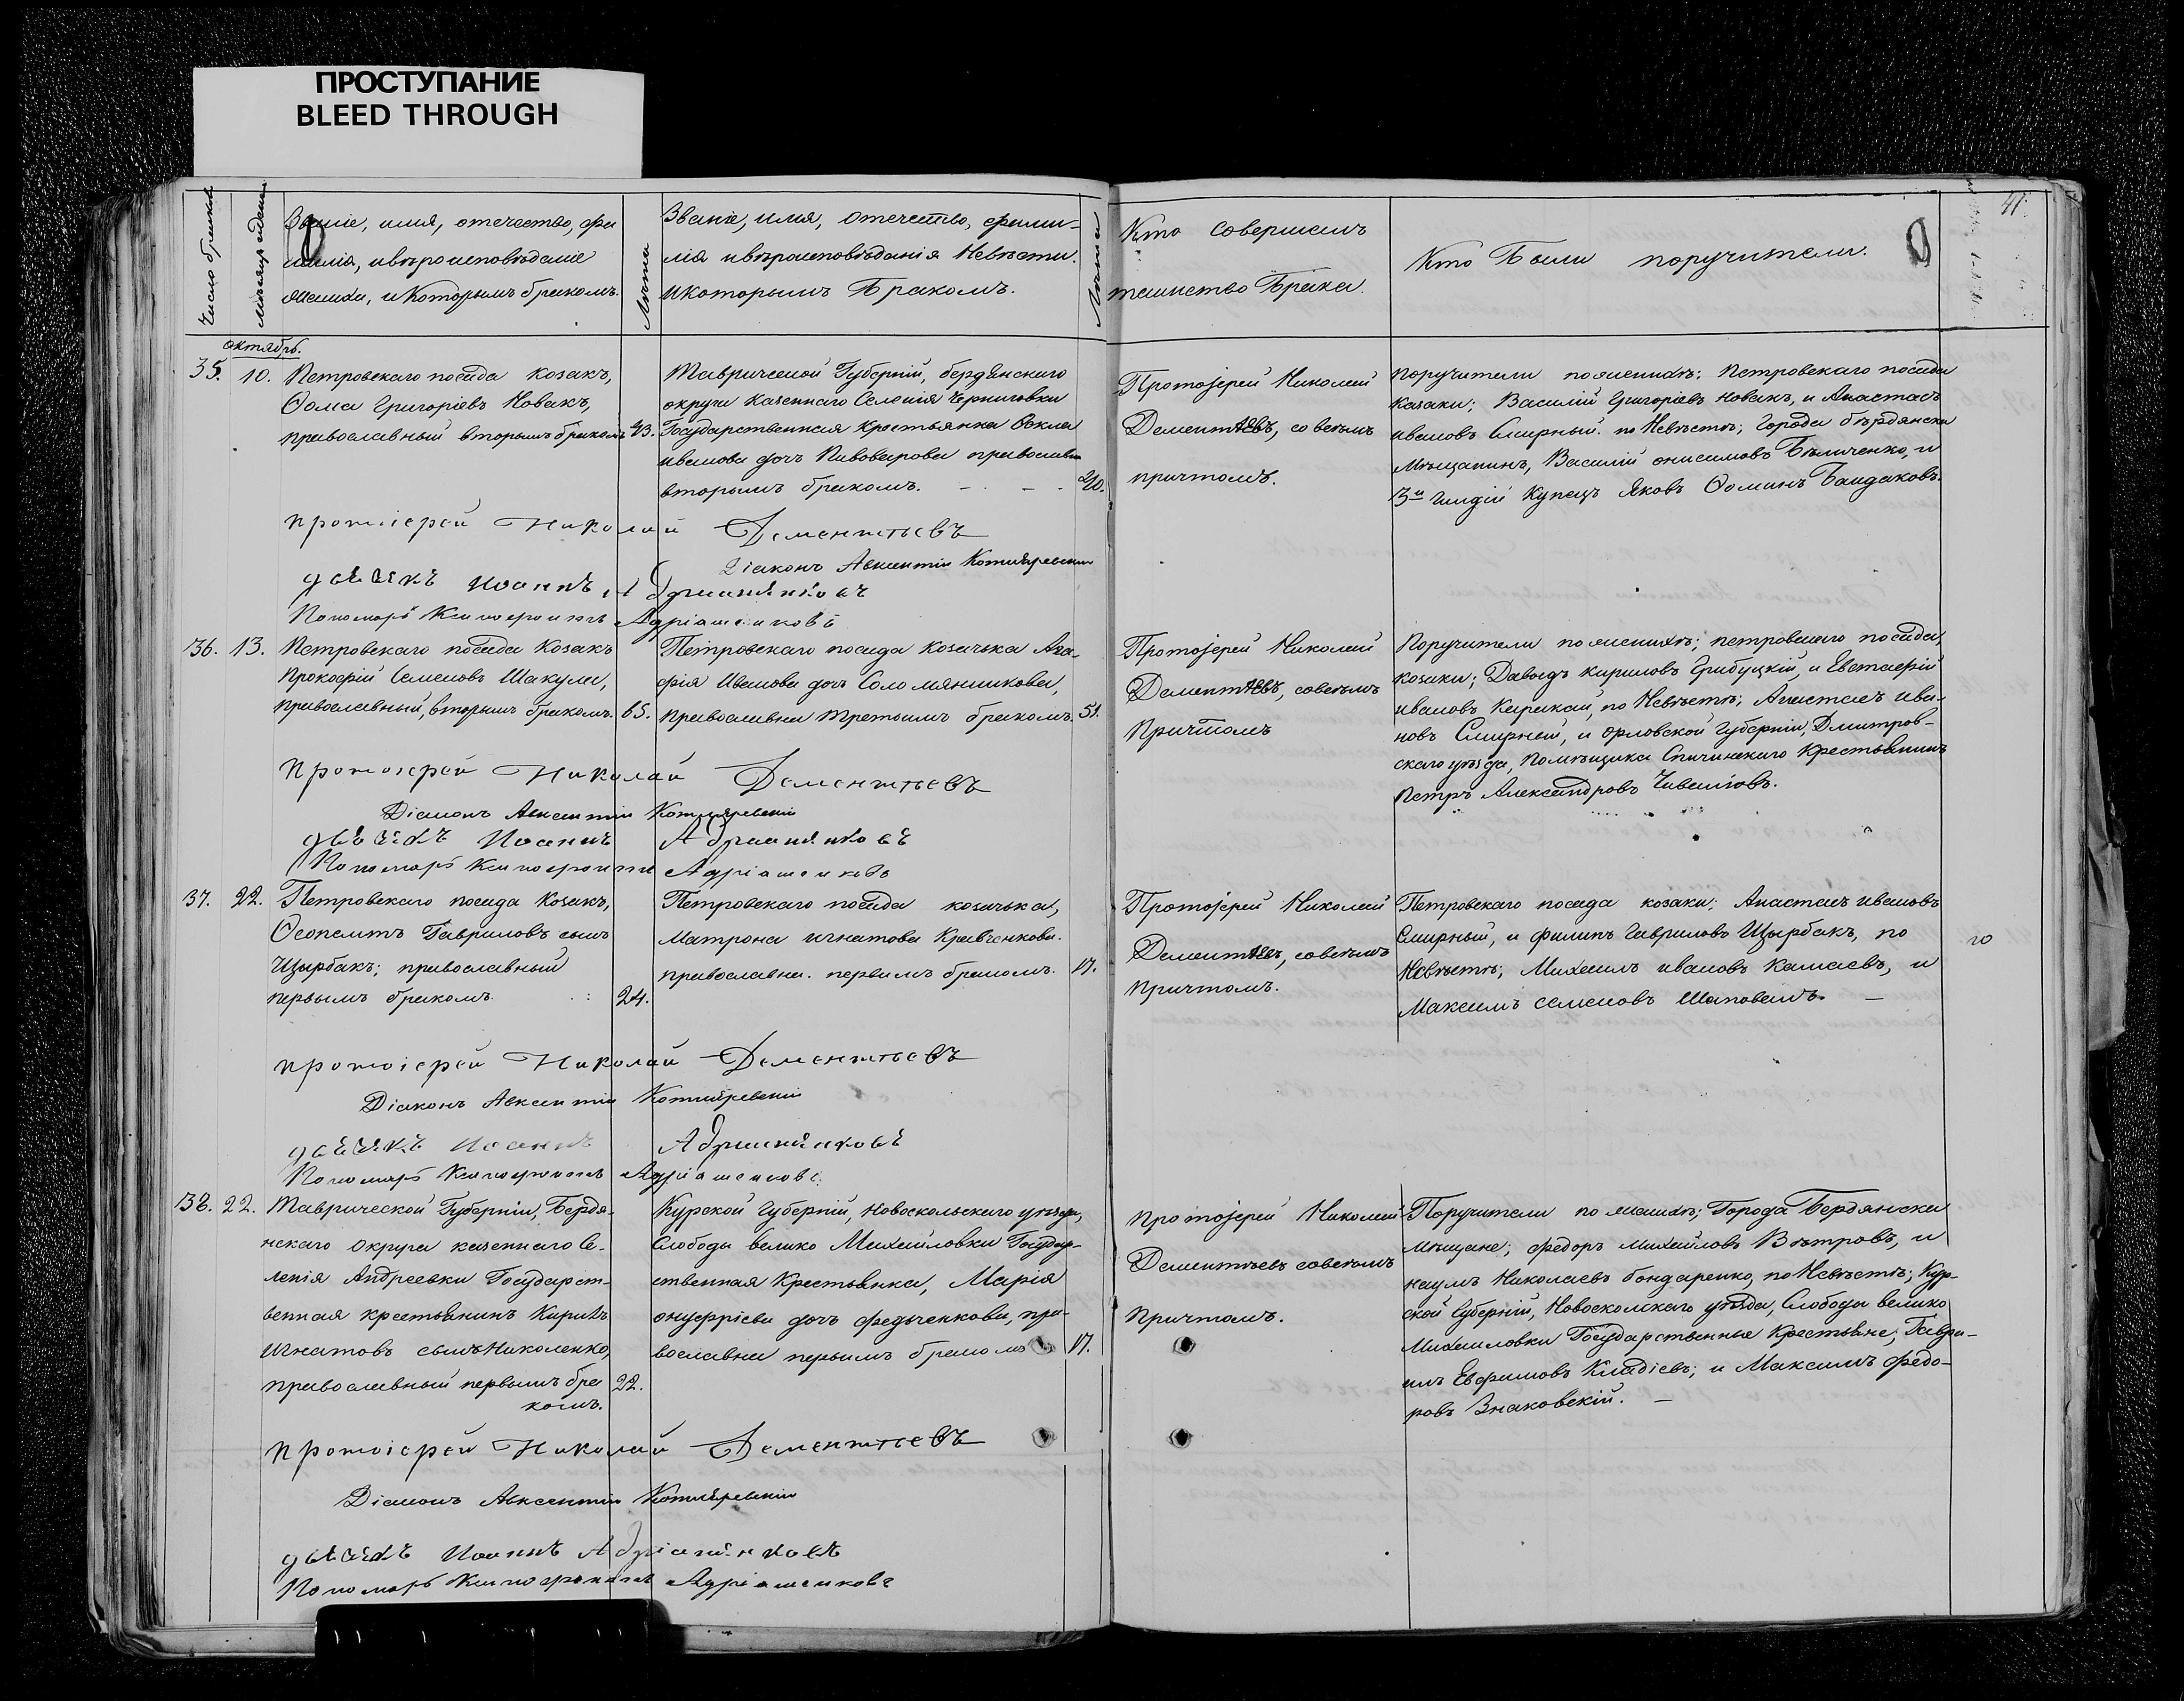 ПРОСТУПАНИЕ
BLEED THROUGH
Число браковъ
Мѣсяцъ и день
Званіе, имя, отечество, фа
милія, и вѣроисповѣданіе
жениха, и которымъ бракомъ.
Лѣта
Званіе, имя, отечество, фами-
лія и вѣроисповѣданія Невѣсты.
и которымъ Бракомъ.
Лѣта
Кто совершалъ
таинство Брака.
Кто Были поручители.
41.
октябрь.
35. 10. Петровскаго посада козакъ,
Ѳома Григоріевъ Новакъ,
православный вторымъ бракомъ 43.
Таврической Губерніи, бердянскаго
округа казеннаго Селенія Черниговки
Государственная Крестьянка Ѳекла
иванова дочь Пивоварова православна
вторымъ бракомъ. - - - 40.
Протоіерей Николай
Дементьевъ, со всѣмъ
причтомъ.
Поручители по женихѣ: Петровскаго посада
Казаки; Василій Григоріевъ Новакъ, и Анастасъ
ивановъ Смирный. по Невѣстѣ; Города бѣрдянска
Мѣщанинъ, Василій онисимовъ Бѣличенко, и
3й гилдіи Купецъ Яковъ Ѳоминъ Бандаковъ.
протоіерей Николай Дементьевъ
Діаконъ Авксентій Котляревскій
дьячекъ Иоаннъ Адріаненковъ
Пономарь Ксенофонтъ Адріаненковъ
36. 13. Петровскаго посада Козакъ
Прокофій Семеновъ Шакула,
православный, вторымъ бракомъ. 65.
Петровскаго посада козачька Ага-
фія Иванова дочь Соломянникова,
православна третьимъ бракомъ. 51.
Протоіерей Николай
Дементьевъ, совсѣмъ
Причтомъ
Поручители по женихѣ; петровскаго посада,
козаки; Давыдъ кириловъ Грибуцкій, и Евстафій
ивановъ Карикай, по Невѣстѣ; Анастасъ ива-
новъ Смирный, и орловской губерніи, Дмитров-
скаго уѣзда, Помѣщика Спичинскаго Крестьянинъ
Петръ Александровъ Чивелговъ.
протоіерей Николай Дементьевъ
Діаконъ Авксентій Котляревскій
дьячекъ Иоаннъ Адріаненковъ
Пономарь Ксенофонтъ Адріаненковъ
37. 22. Петровскаго посада Козакъ,
Ѳеопемтъ Гавриловъ сынъ
Щырбакъ; православный
первымъ бракомъ. 24.
Петровскаго посада козачька,
Матрона игнатова Кравченкова.
православна. первимъ бракомъ. 17.
Протоіерей Николай
Дементьевъ, совсѣмъ
Причтомъ.
Петровскаго посада козаки; Анастасъ ивановъ
Смирный, и филипъ гавриловъ Щырбакъ, по
Невѣстѣ; Михаилъ ивановъ Камаевъ, и
Максимъ семеновъ Шаповалъ. —
протоіерей Николай Дементьевъ
Діаконъ Авксентій Котляревскій
дьячекъ Иоаннъ Адріаненковъ
Пономарь Ксенофонтъ Адріаненковъ
38. 22. Таврической Губерніи, Бердя-
нскаго округа казеннаго Се-
ленія Андреевки Государст-
венная крестьянинъ Кирилъ
Игнатовъ сынъ Николенко,
православный первымъ бра 22.
комъ.
Курской Губерніи, Новоскольскаго уѣзда,
Слободы велико Михайловки Государ-
ственная Крестьянка, Марія
онуфріева дочь федченкова, пра-
вославна первымъ бракомъ 17.
Протоіерей Николай
Дементьевъ совсѣмъ
Причтомъ.
Поручители по женихѣ; Города Бердянска
Мѣщане; федоръ михайловъ Вѣтровъ, и
наумъ Николаевъ бондаренко, по Невѣстѣ; Кур-
ской Губерніи, Новоскольскаго уѣзда, Слободы велико
Михаиловки Государственные Крестьяне; Гаври-
илъ Евфимовъ Кладіевъ; и Максимъ федо-
ровъ Знаковскій. —
протоіерей Николай Дементьевъ
Діаконъ Авксентій Котляревскій
дьячекъ Иоаннъ Адріаненковъ
Пономарь Ксенофонтъ Адріаненковъ